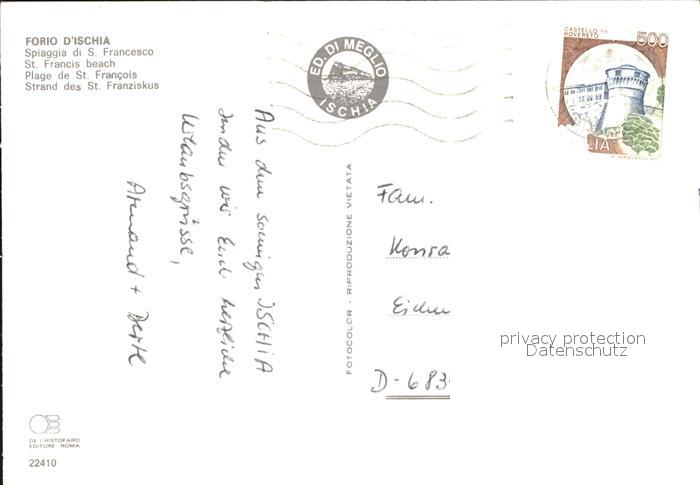 FORIO D'ISCHIA
Spiaggia di S. Francesco
St. Francis beach
Plage de St. François
Strand des St. Franziskus
ED. DI MEGLIO
ISCHIA
CASTELLO DI
ROVERETO
500
LIA
Aus dem sonnigen ISCHIA
senden wir Euch herzliche
Urlaubsgrüsse,
Armand +
FOTOCOLOR - RIPRODUZIONE VIETATA
Fam.
Konra
Eichen
D-683
privacy protection
Datenschutz
DE CHISTOFARO
EDITORE ROMA
22410